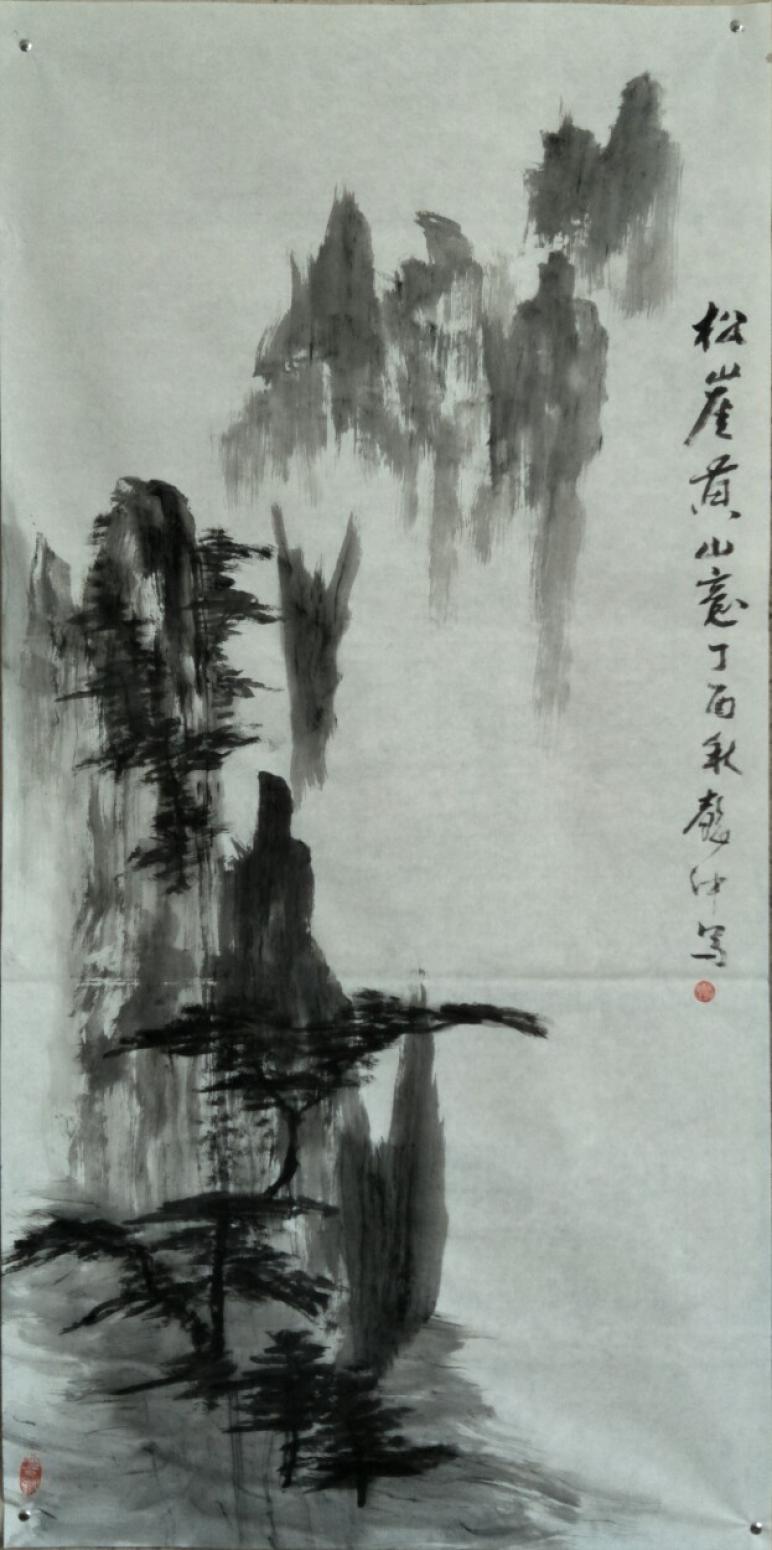 松崖黄山意丁酉秋懿仲写